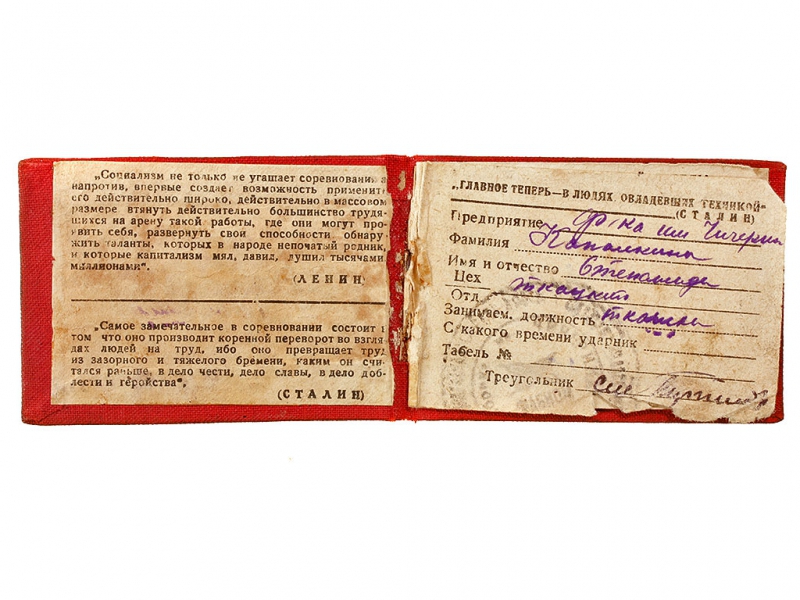 „Социализм не только не угашает соревнования, а
напротив, впервые создает возможность применить
его действительно широко, действительно в массовом
размере втянуть действительно большинство трудя-
щихся на арену такой работы, где они могут про-
явить себя, развернуть свои способности обнару-
жить таланты, которых в народе непочатый родник,
и которые капитализм мял, давил, лушил тысячами
миллионами“.
(ЛЕНИН)
„Самое замечательное в соревновании состоит в
том что оно производит коренной переворот во взгля-
дах людей на труд, ибо оно превращает труд
из зазорного и тяжелого бремени, каким он счи-
тался раньше, в дело чести, дело славы, в дело доб-
лести и геройства“,
(СТАЛИН)
„ГЛАВНОЕ ТЕПЕРЬ—В ЛЮДЯХ ОВЛАДЕВШИХ ТЕХНИКОЙ“
(СТАЛИН)
Предприятие ф-ка им Чичерина
Фамилия
Имя и отчество
Цех ткацкий
Отд
Занимаем. должность ткачиха
С какого времени ударник
Табель №
Треугольник